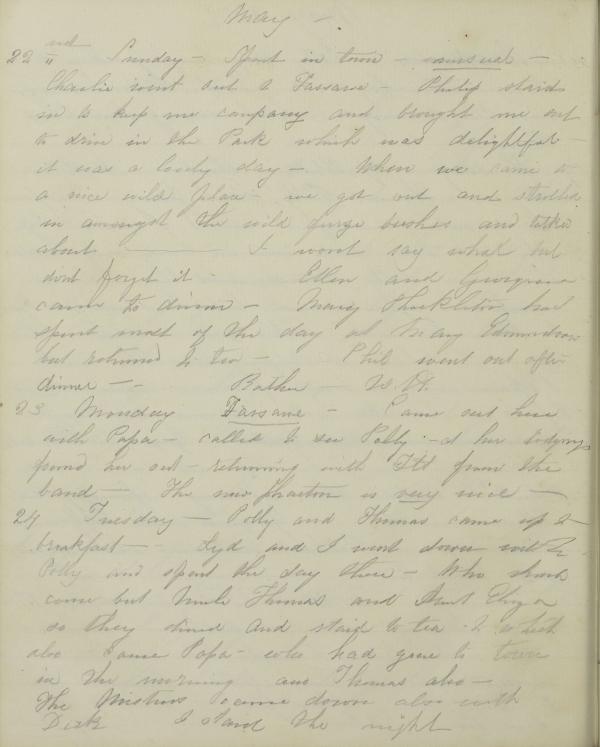 May -
22nd Sunday - Spent in town - unusual -
Charlie went out to Fassaroe - Philip staid
in to keep me company and brought me out
to drive in the Park which was delightful -
it was a lovely day - When we came to
a nice wild place - we got out and strolled
in amongst the wild furze bushes and talked
about ——— I wont say what but
dont forget it - Ellen and Georgina
came to dinner - Mary Shackleton had
spent most of the day at Mary Edmundsons
but returned to tea - Phil went out after
dinner - -
23 Monday Fassaroe - Came out here
with Papa - called to see Polly - at her lodgings
found her out - returning with from the
band - The new phaeton is very nice -
24 Tuesday - Polly and Thomas came up to
breakfast - Lyd and I went down with
Polly and spent the day there - Who should
come but Uncle Thomas and Aunt Eliza
so they dined and staid to tea - to which
also came Papa - who had gone to town
in the morning and Thomas also -
The came down also with
I staid the night